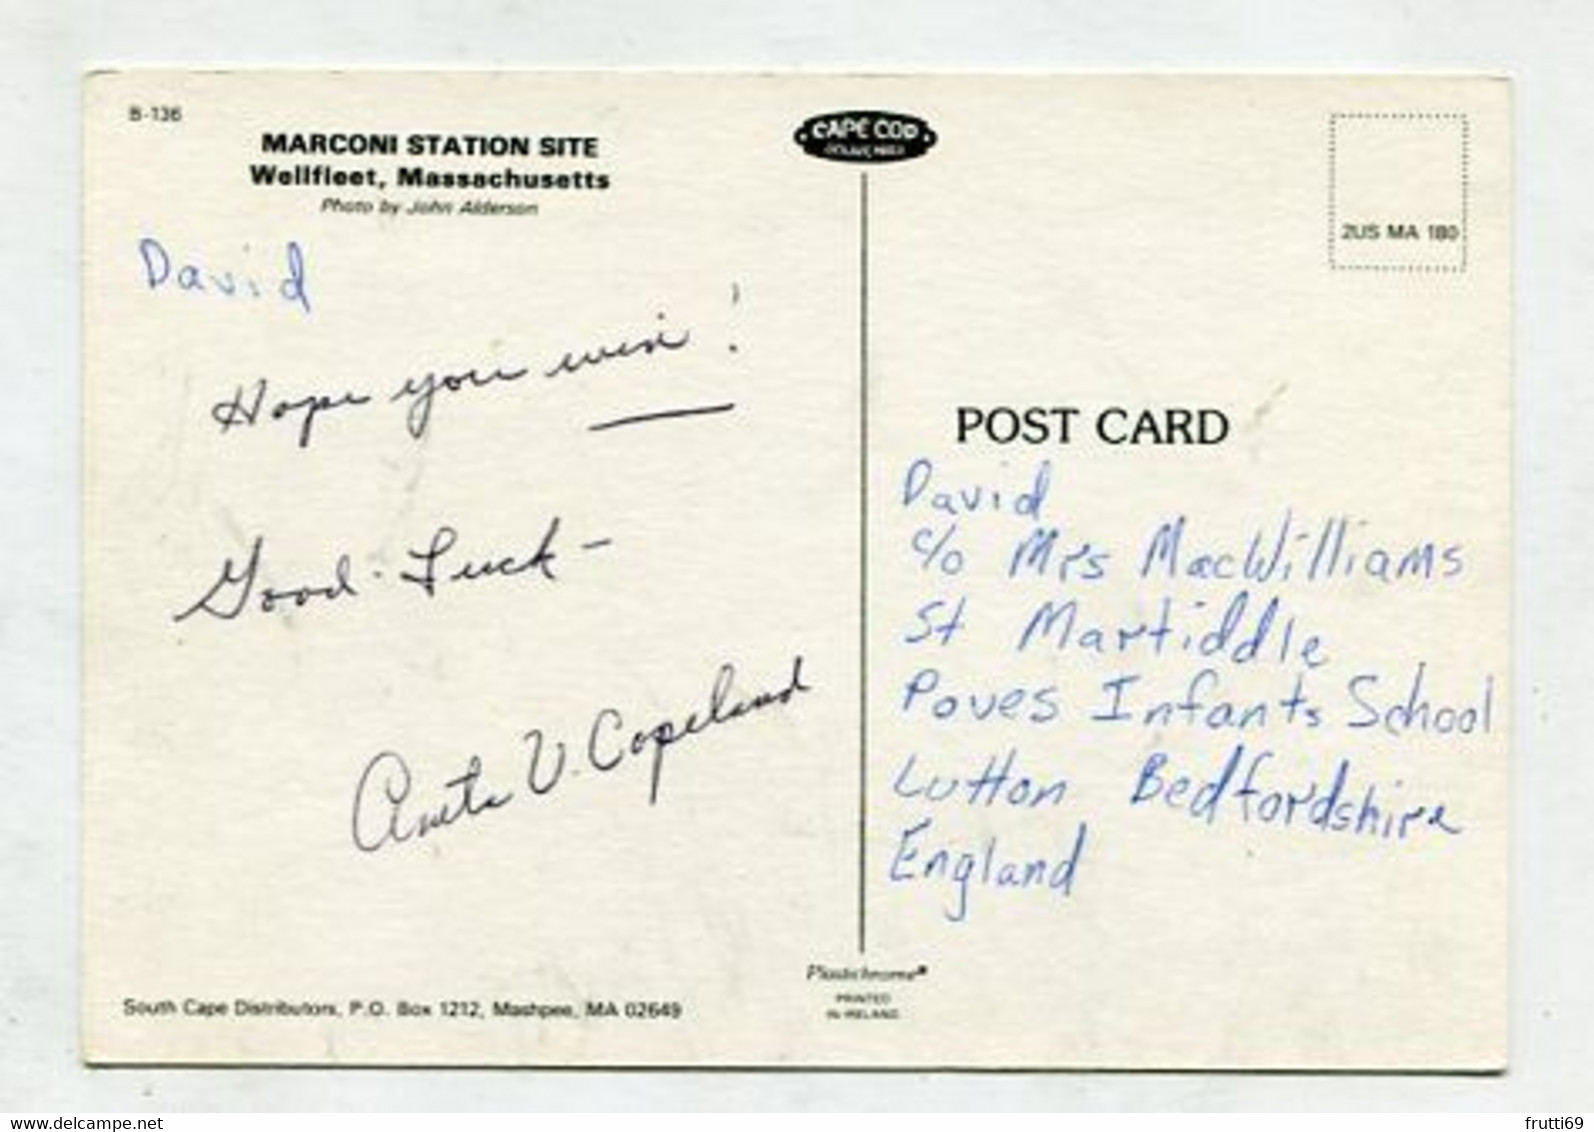 B-136
MARCONI STATION SITE
Wellfleet, Massachusetts
Photo by John Alderson
David
Hope you win!
Good-Luck-
Anita V. Copeland
South Cape Distributors, P.O. Box 1212, Mashpee, MA 02649
CAPE COD
Plastichrome®
PRINTED
IN IRELAND
2US MA 180
POST CARD
David
c/o Mrs MacWilliams
St Martiddle
Poves Infants School
Lutton Bedfordshire
England
www.delcampe.net
frutti69